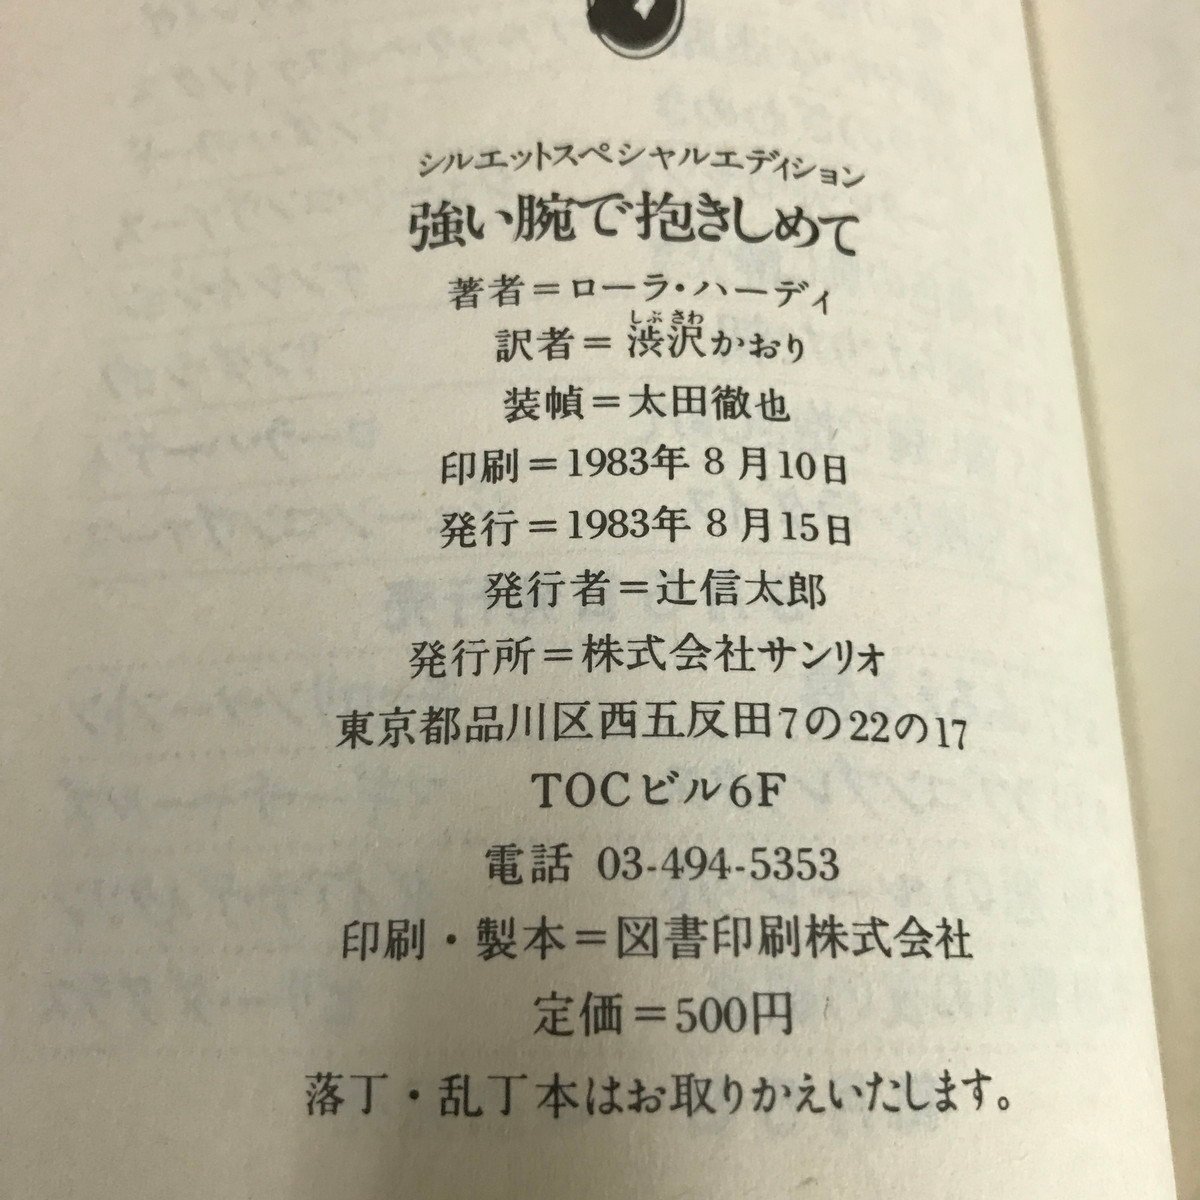 シルエットスペシャルエディション
強い腕で抱きしめて
著者＝ローラ・ハーディ
しぶ さわ
訳者＝渋沢かおり
装幀＝太田徹也
印刷＝1983年8月10日
発行＝1983年8月15日
発行者＝辻信太郎
発行所＝株式会社サンリオ
東京都品川区西五反田7の22の17
TOCビル6F
電話 03-494-5353
印刷・製本＝図書印刷株式会社
定価＝500円
落丁・乱丁本はお取りかえいたします。